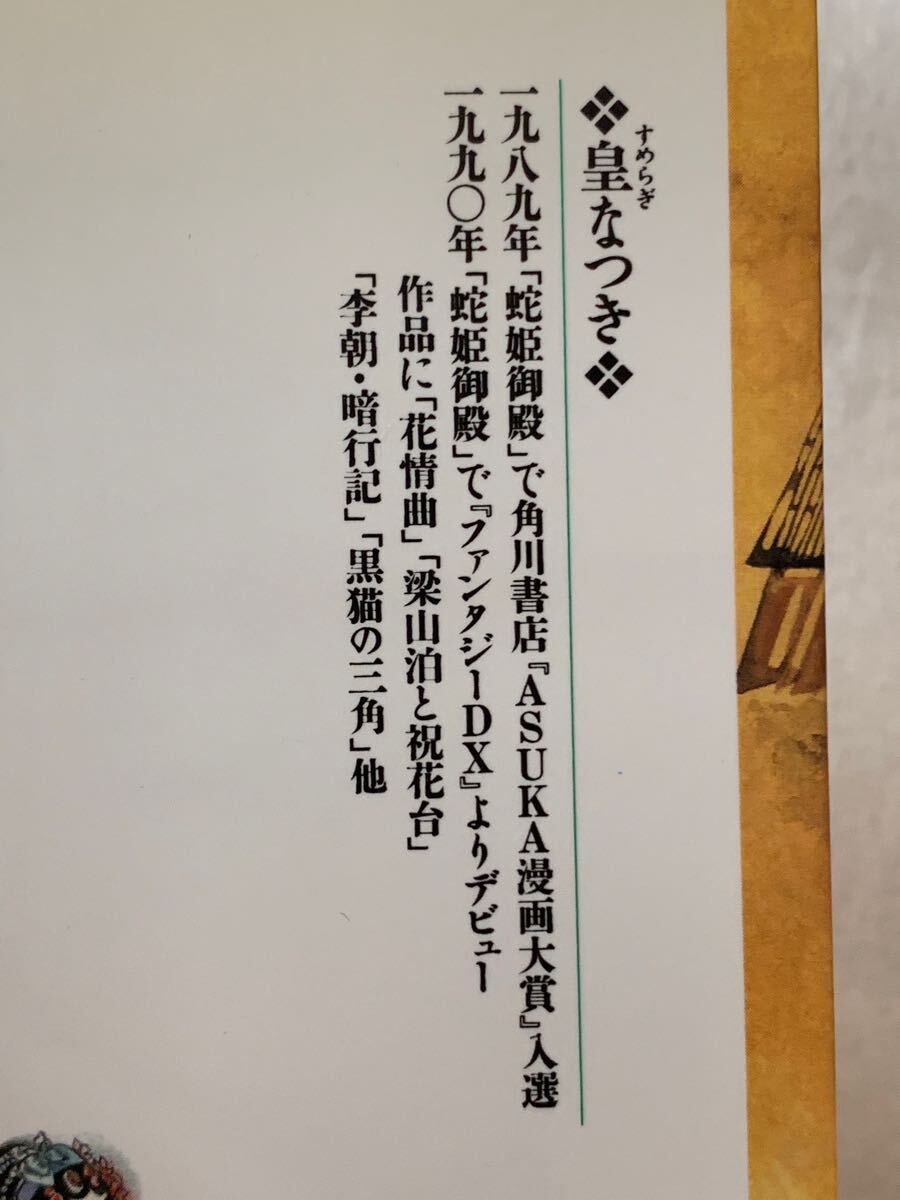 ❖皇なつき❖
すめらぎ
一九八九年「蛇姫御殿」で角川書店『ASUKA漫画大賞』入選
一九九〇年「蛇姫御殿」で『ファンタジーDX』よりデビュー
作品に「花情曲」「梁山泊と祝花台」
「李朝・暗行記」「黒猫の三角」他